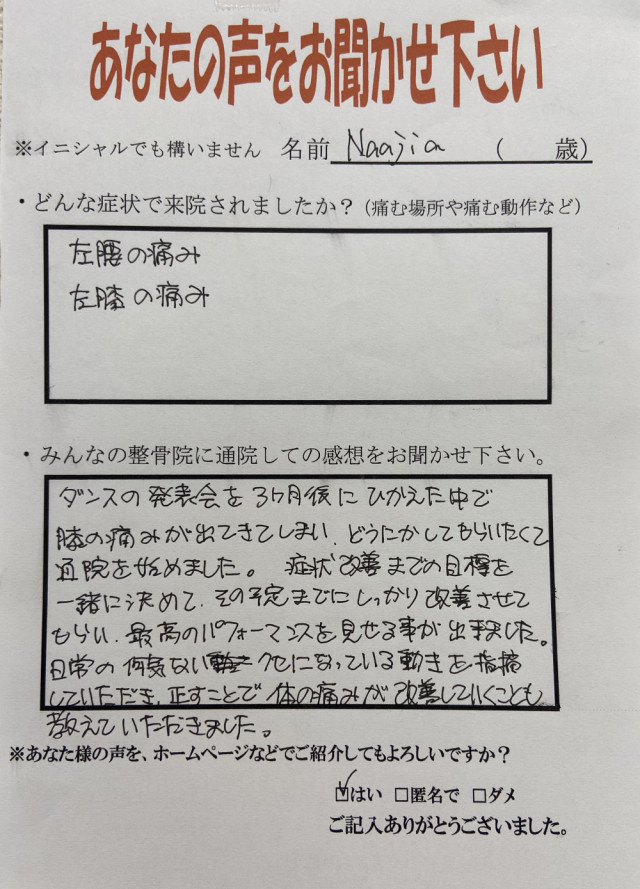 あなたの声をお聞かせ下さい
※イニシャルでも構いません 名前 Naajia ( 歳)
・どんな症状で来院されましたか？(痛む場所や痛む動作など)
左腰の痛み
左膝の痛み
・みんなの整骨院に通院しての感想をお聞かせ下さい。
ダンスの発表会を3ヶ月後にひかえた中で
膝の痛みが出てきてしまい、どうにかしてもらいたくて
通院を始めました。 症状改善までの目標を
一緒に決めて、その予定までにしっかり改善させて
もらい、最高のパフォーマンスを見せる事が出来ました。
日常の何気ない クセになっている動きを指摘
していただき、正すことで体の痛みが改善していくことも
教えていただきました。
※あなた様の声を、ホームページなどでご紹介してもよろしいですか？
☑はい □匿名で □ダメ
ご記入ありがとうございました。